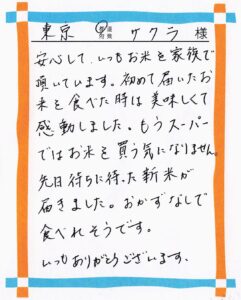 東京 サクラ 様
安心して、いつもお米を家族で
頂いています。初めて届いたお
米を食べた時は美味しくて
感動しました。もうスーパー
ではお米を買う気になりません。
先日待ちに待った新米が
届きました。おかずなしで
食べれそうです。
いつもありがとうございます。